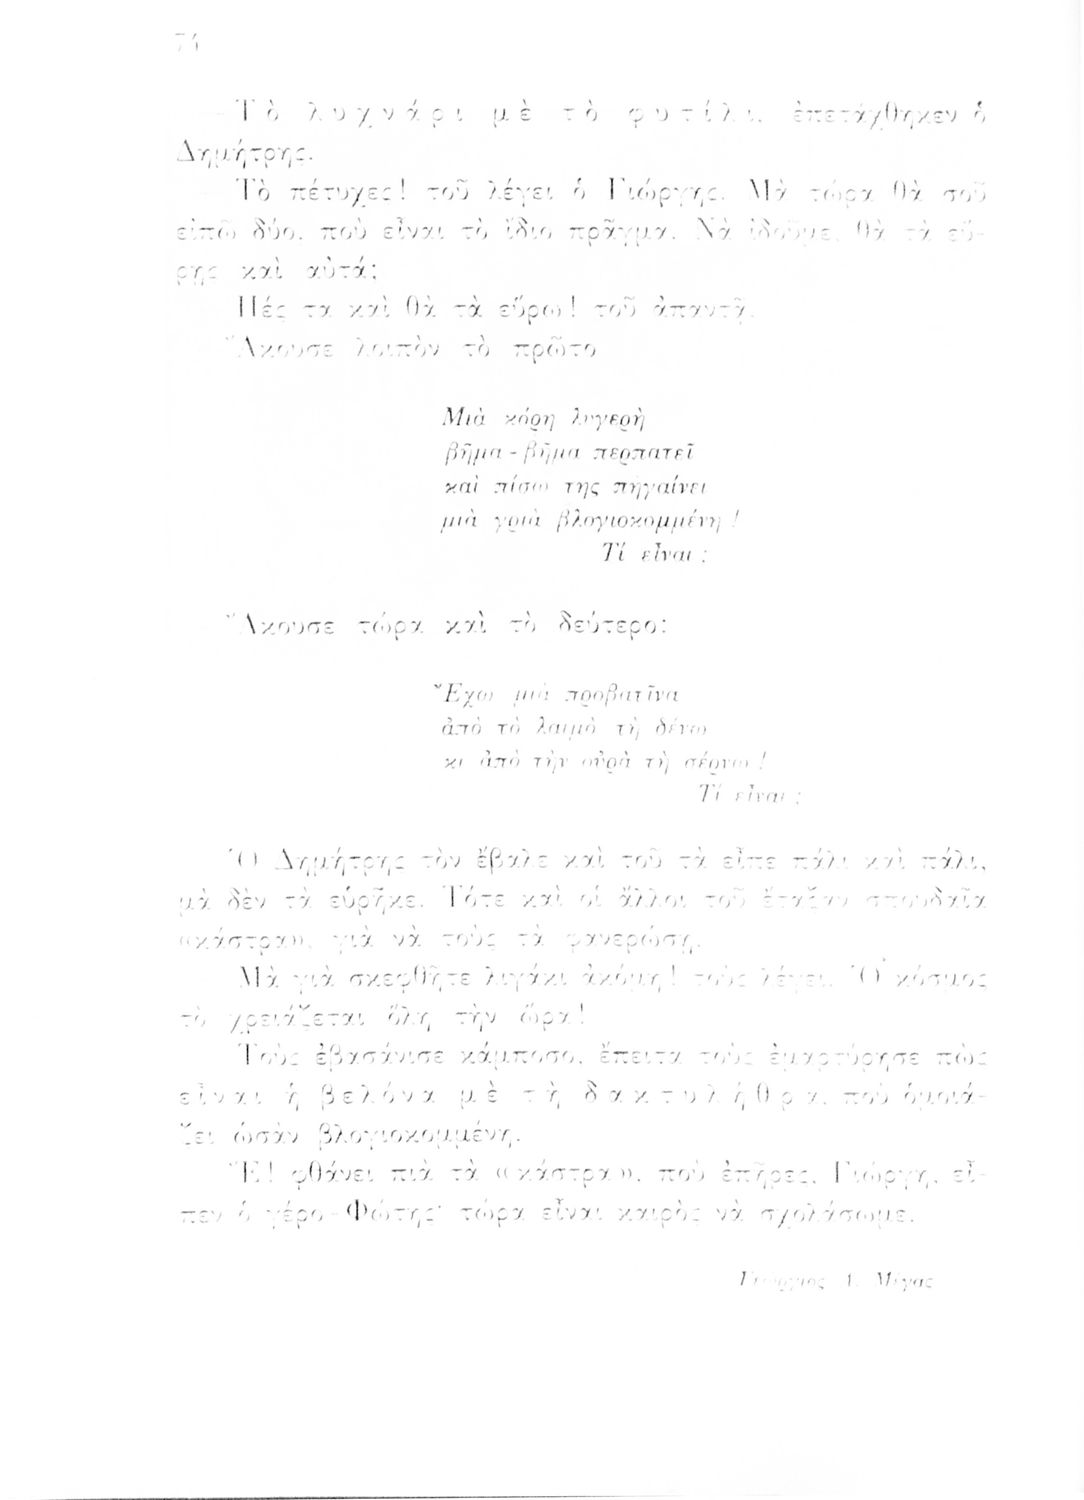 74
— Τὸ λυχνάρι μὲ τὸ φυτίλι, ἐπετάχθηκεν ὁ
Δημήτρης.
— Τὸ πέτυχες! τοῦ λέγει ὁ Γιώργης. Μὰ τώρα θὰ σοῦ
εἰπῶ δύο, ποὺ εἶναι τὸ ἴδιο πρᾶγμα. Νὰ ἰδοῦμε, θὰ τὰ εὕ-
ρῃς καὶ αὐτά;
Πές τα καὶ θὰ τὰ εὕρω! τοῦ ἀπαντᾷ.
Ἄκουσε λοιπὸν τὸ πρῶτο
Μιὰ κόρη λυγερὴ
βῆμα - βῆμα περπατεῖ
καὶ πίσω της πηγαίνει
μιὰ γριὰ βλογιοκομμένη!
Τί εἶναι;
Ἄκουσε τώρα καὶ τὸ δεύτερο:
Ἔχω μιὰ προβατῖνα
ἀπὸ τὸ λαιμὸ τὴ δένω
κι ἀπὸ τὴν οὐρὰ τὴ σέρνω!
Τί εἶναι;
Ὁ Δημήτρης τὸν ἔβαλε καὶ τοῦ τὰ εἶπε πάλι καὶ πάλι,
μὰ δὲν τὰ εὑρῆκε. Τότε καὶ οἱ ἄλλοι τοῦ ἔταξαν σπουδαῖα
«κάστρα», γιὰ νὰ τοὺς τὰ φανερώσῃ.
Μὰ γιὰ σκεφθῆτε λιγάκι ἀκόμη! τοὺς λέγει. Ὁ κόσμος
τὸ χρειάζεται ὅλη τὴν ὥρα!
Τοὺς ἐβασάνισε κάμποσο, ἔπειτα τοὺς ἐμαρτύρησε πὼς
εἶναι ἡ βελόνα μὲ τὴ δακτυλήθρα, ποὺ ὁμοιά-
ζει ὡσὰν βλογιοκομμένη.
Ἔ! φθάνει πιὰ τὰ «κάστρα», ποὺ ἐπῆρες, Γιώργη, εἶ-
πεν ὁ γέρο - Φώτης· τώρα εἶναι καιρὸς νὰ σχολάσωμε.
Γεώργιος Α. Μέγας